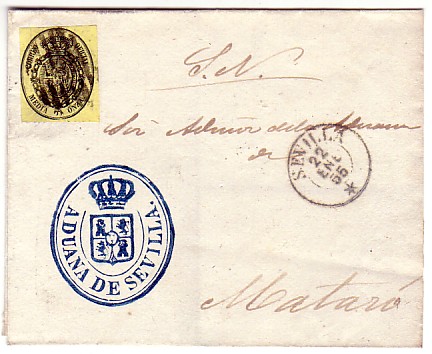 CORREO OFICIAL
MEDIA ONZA
S. N.
Sor Admor de la Aduana
de
SEVILLA
22
ENE
65
ADUANA DE SEVILLA.
Mataró